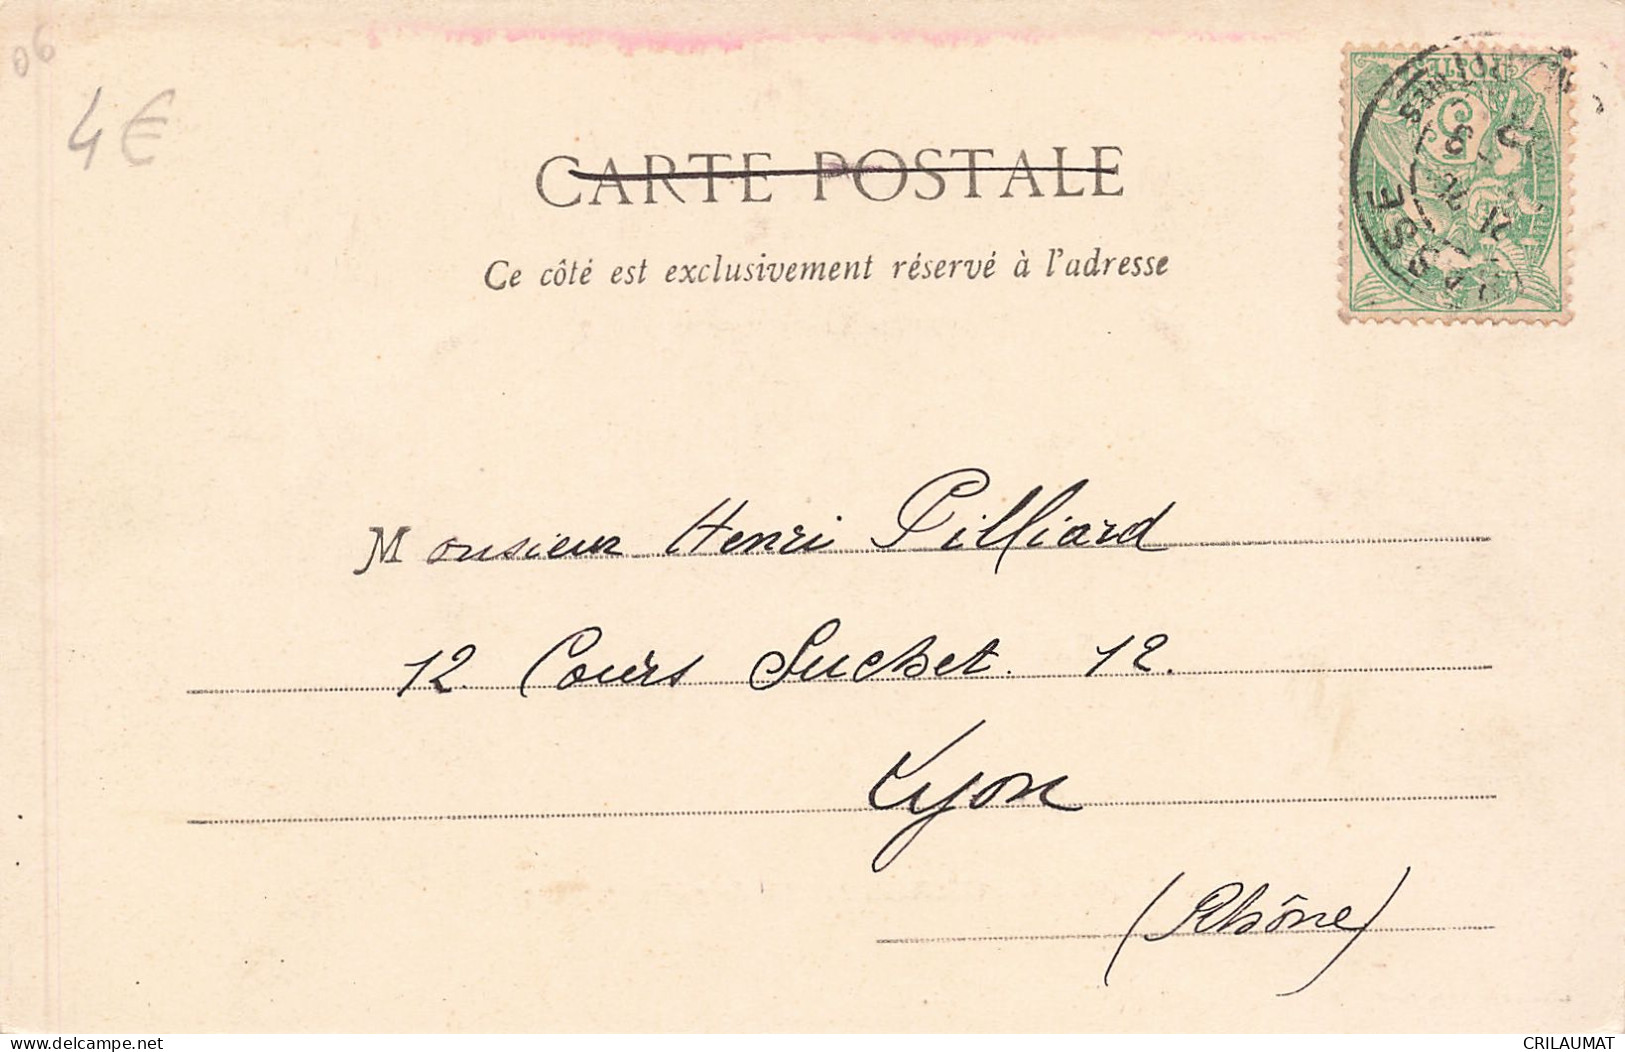 06
4€
CARTE POSTALE
Ce côté est exclusivement réservé à l'adresse
POSTES
5
Monsieur Henri Pilliard
12. Cours Suchet. 12.
Lyon
(Rhône)
www.delcampe.net
CRILAUMAT